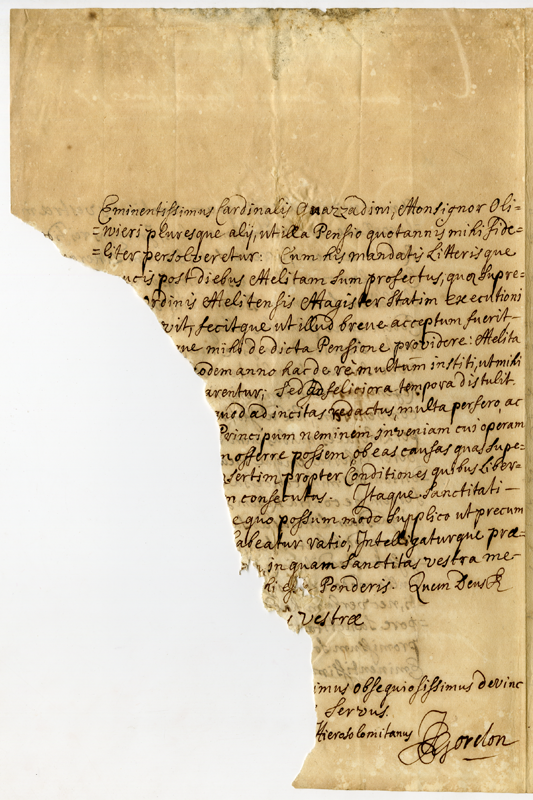 Eminentissimus Cardinalis Guazzadini, Monsignor Oli=
=wieri pluresque alij, ut illa Pensio quotannis mihi fide=
=liter persolveretur: Cum his mandatis Litterisque
ucis post diebus Melitam sum profectus, quo Supre=
rdinis Melitensis Magister statim Executioni
vit, fecitque ut illud breve acceptum fuerit
ue mihi de dicta Pensione providere: Melita
odem anno hac de rê multum institi, ut mihi
arentur, Sed ad feliciora tempora distulit
ad incitas redactus, multa perfero, ac
Principum neminem inveniam cui operam
offerre possem, ob eas causas quas supe=
sertim propter Conditiones quibus Liber=
n consecutus. Itaque Sanctitati —
e quo possum modo supplico ut precum
abeatur ratio, Intelligaturque præ=
, in quam Sanctitas vestra me=
hi Ponderis. Quem Deus
vestræ
imus obsequiosissimus devinc
Servus
Hierosolomitanus Gordon